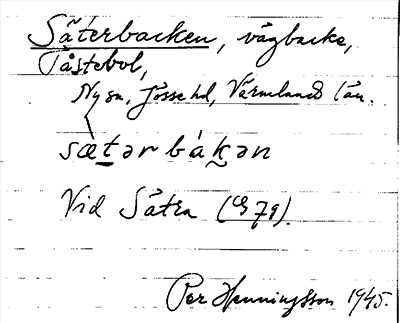 Säterbacken, vägbacke,
Tåstebol,
Ny sn, Jösse hd, Värmlands län.
sæ̀tərbákən
Vid Sätra (Eg 79).
Per Henningsson 1945.